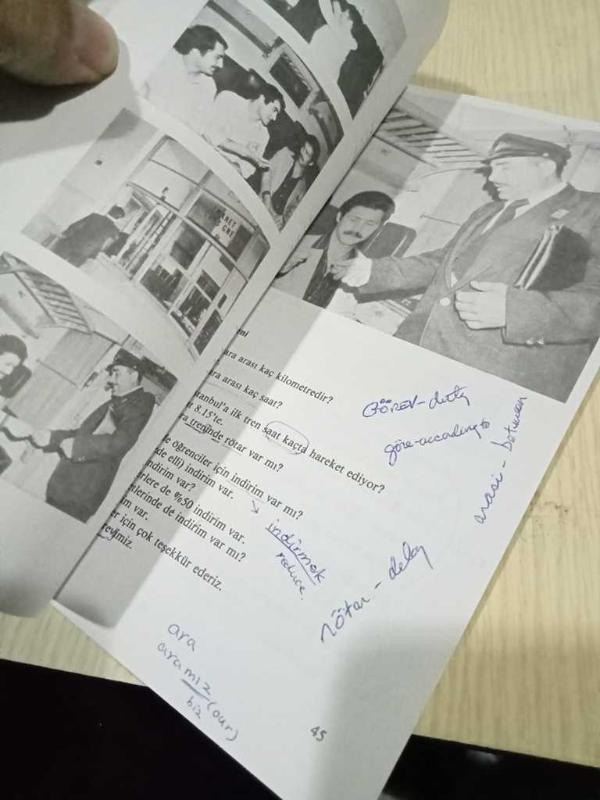 ara arası kaç kilometredir?
ara arası kaç saat?
stanbul'a ilk tren saat kaçta hareket ediyor?
8.15'te.
a treninde rötar var mı?
öğrenciler için indirim var mı?
de elli) indirim var.
ndirim var?
lere de %50 indirim var.
lerinde de indirim var mı?
im var.
r için çok teşekkür ederiz.
evimiz.
Görev - duty
göre - according to
arası - between
indirmek
reduce
rötar - delay
ara
aramız
biz (our)
45